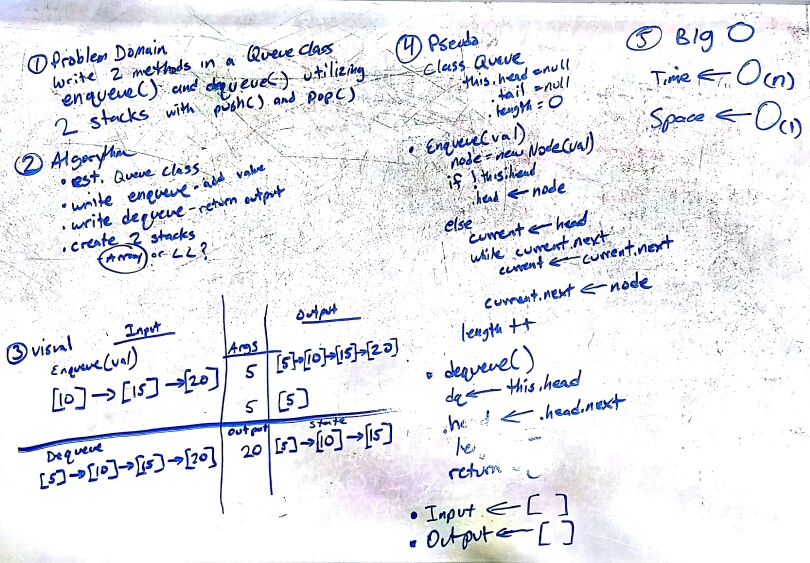 ① Problem Domain
write 2 methods in a Queue class
enqueue() and dequeue() utilizing
2 stacks with push() and pop()
② Algorythm
• est. Queue class
• write enqueue - add value
• write dequeue - return output
• create 2 stacks
Array or LL?
③ visual
Input
Args
Output
Enqueue(val)
[10] → [15] → [20]
5
[5]→[10]→[15]→[20]
5
[5]
Dequeue
output
state
[5]→[10]→[15]→[20]
20
[5]→[10]→[15]
④ Pseudo
Class Queue
this.head = null
tail = null
.length = 0
• Enqueue(val)
node = new Node(val)
if !this.head
.head ← node
else
current ← head
while current.next
current ← current.next
current.next ← node
length ++
• dequeue()
dq ← this.head
← .head.next
return
• Input ← [ ]
• Output ← [ ]
⑤ Big O
Time ← O(n)
Space ← O(1)